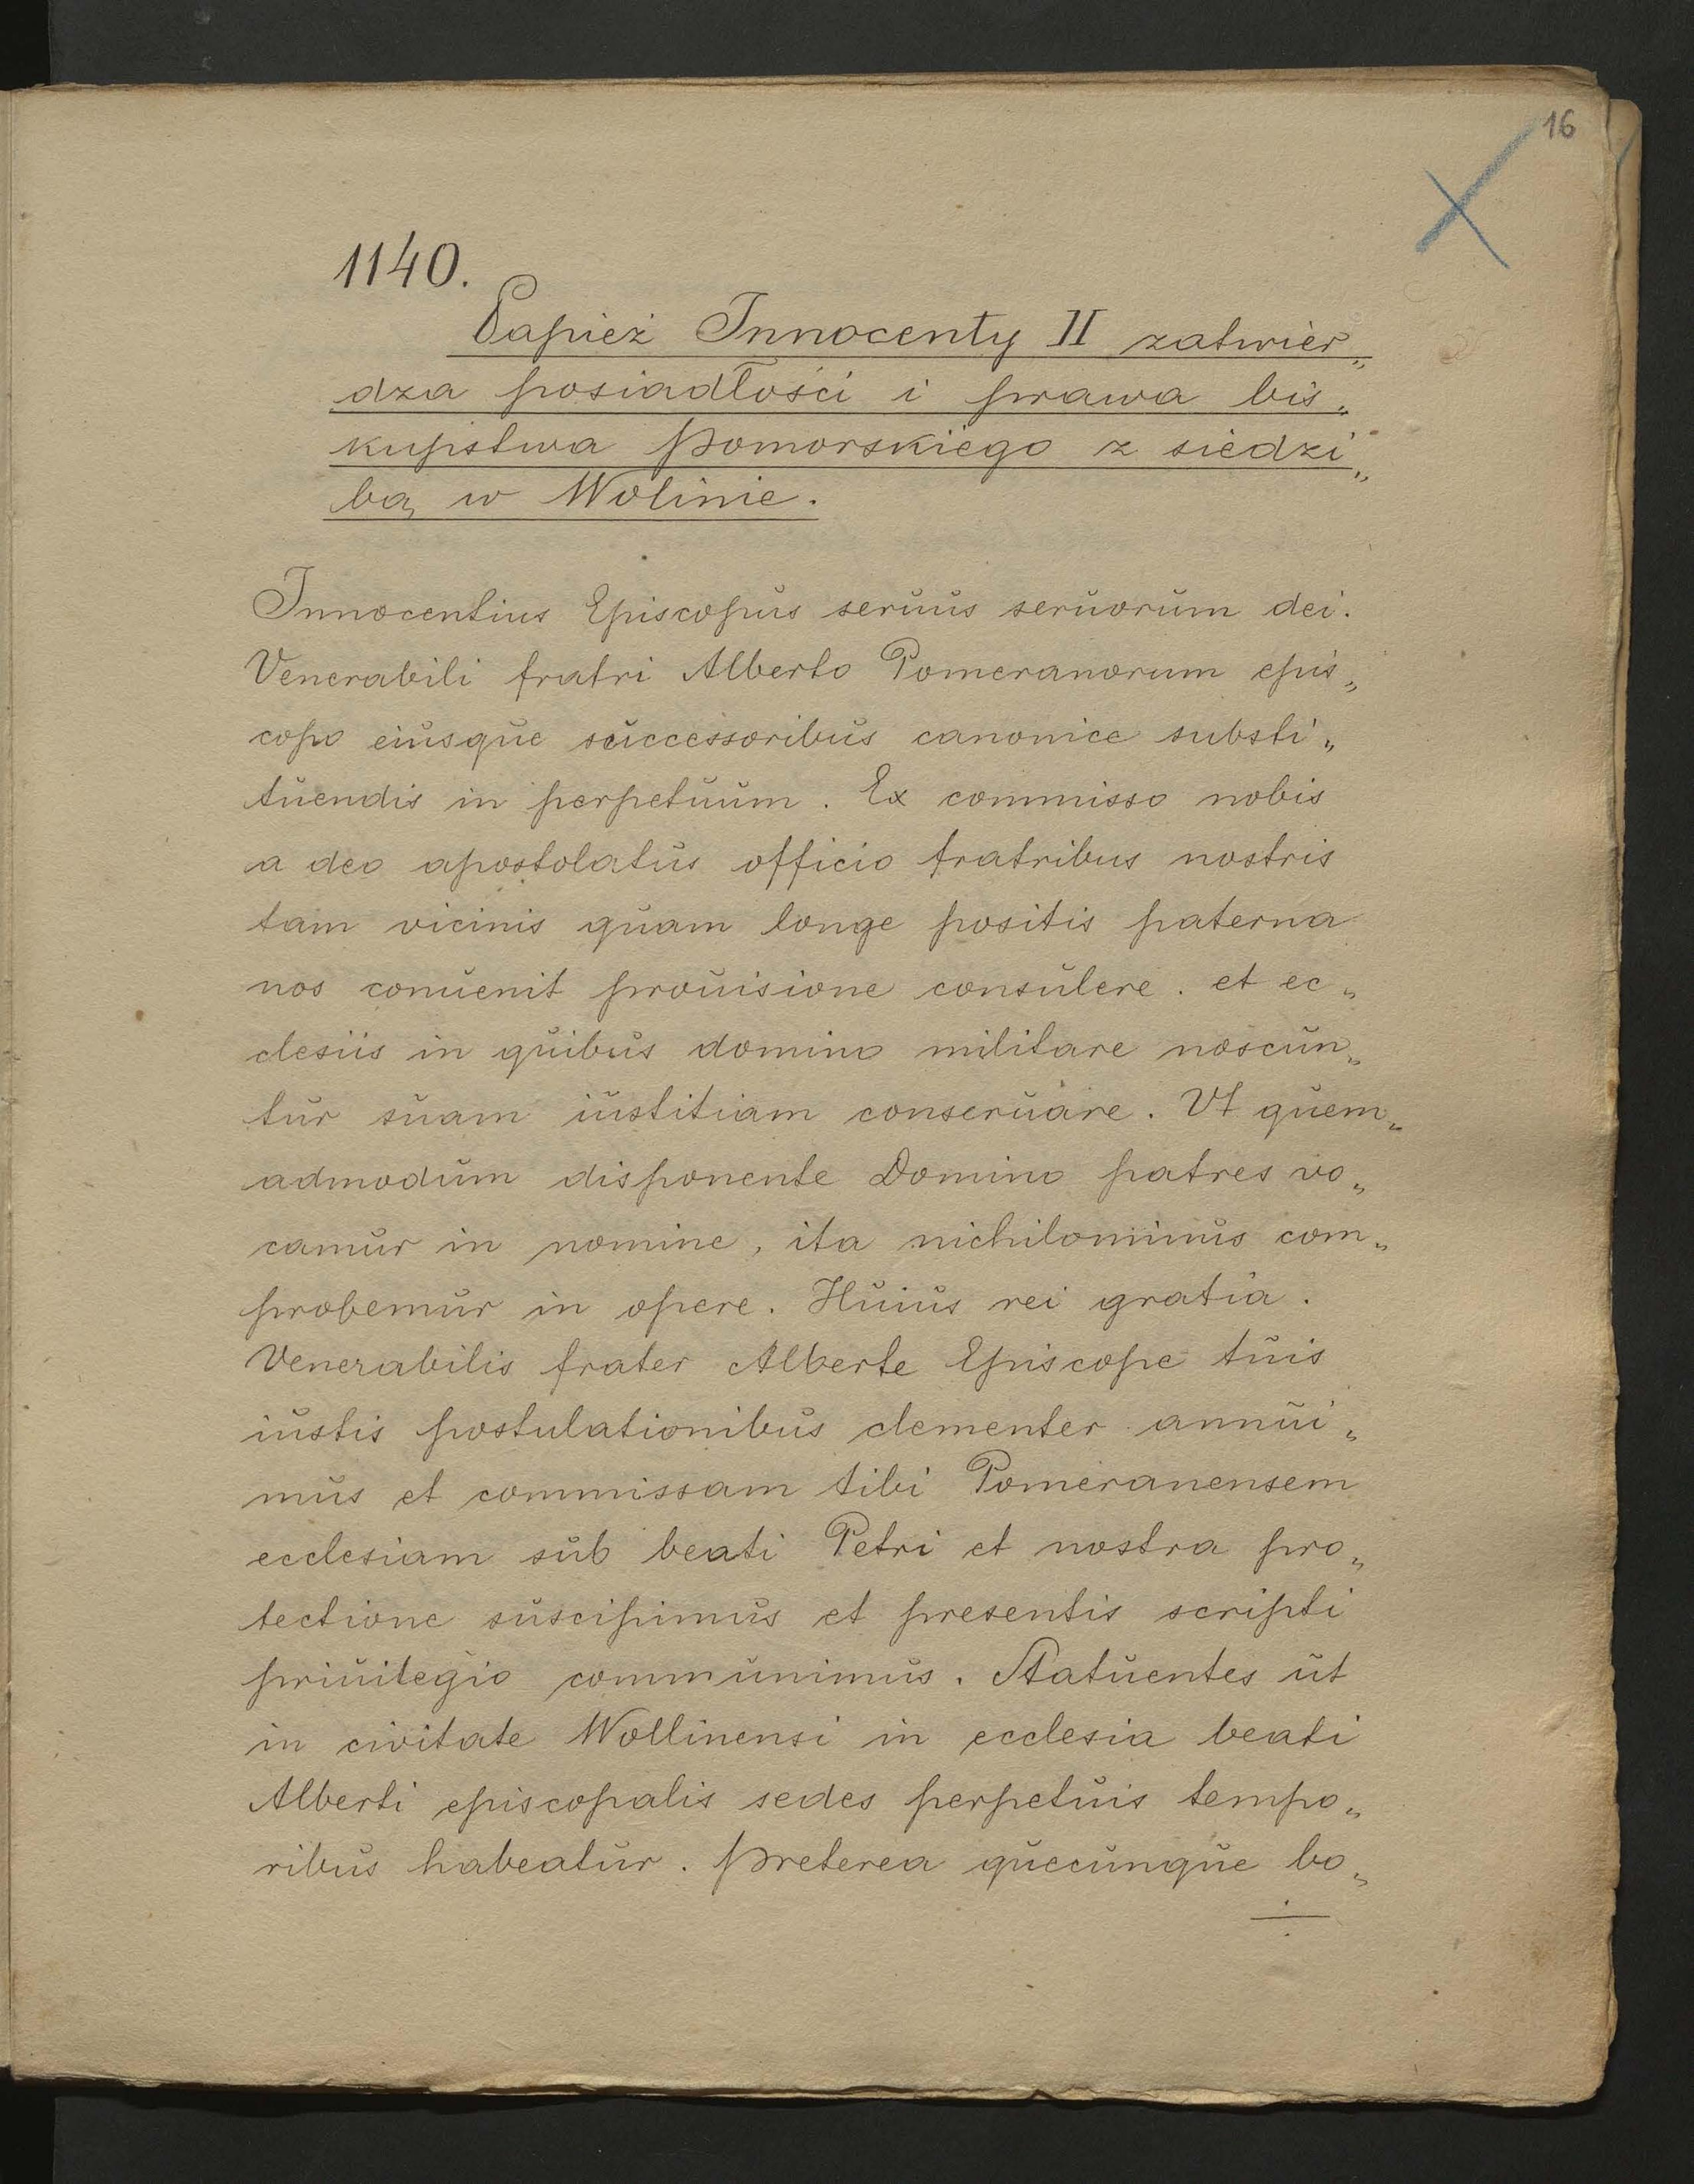 16
1140.
Papież Innocenty II zatwier„
dza posiadłości i prawa bis„
kupstwa Pomorskiego z siedzi„
bą w Wolinie.
Innocentius Episcopus seruus seruorum dei.
Venerabili fratri Alberto Pomeranorum epis„
copo eiusque successoribus canonice substi„
tuendis in perpetuum. Ex commisso nobis
a deo apostolatus officio fratribus nostris
tam vicinis quam longe positis paterna
nos conuenit prouisione consulere. et ec„
clesiis in quibus domino militare noscun„
tur suam iustitiam conseruare. Vt quem„
admodum disponente Domino patres vo„
camur in nomine, ita nichilominus com„
probemur in opere. Huius rei gratia.
Venerabilis frater Alberte Episcope tuis
iustis postulationibus clementer annui„
mus et commissam tibi Pomeranensem
ecclesiam sub beati Petri et nostra pro„
tectione suscipimus et presentis scripti
priuilegio communimus. Statuentes ut
in civitate Wollinensi in ecclesia beati
Alberti episcopalis sedes perpetuis tempo„
ribus habeatur. Preterea quecunque bo„